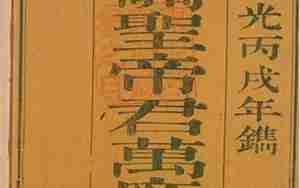 光丙戌年鐫
聖帝君萬應